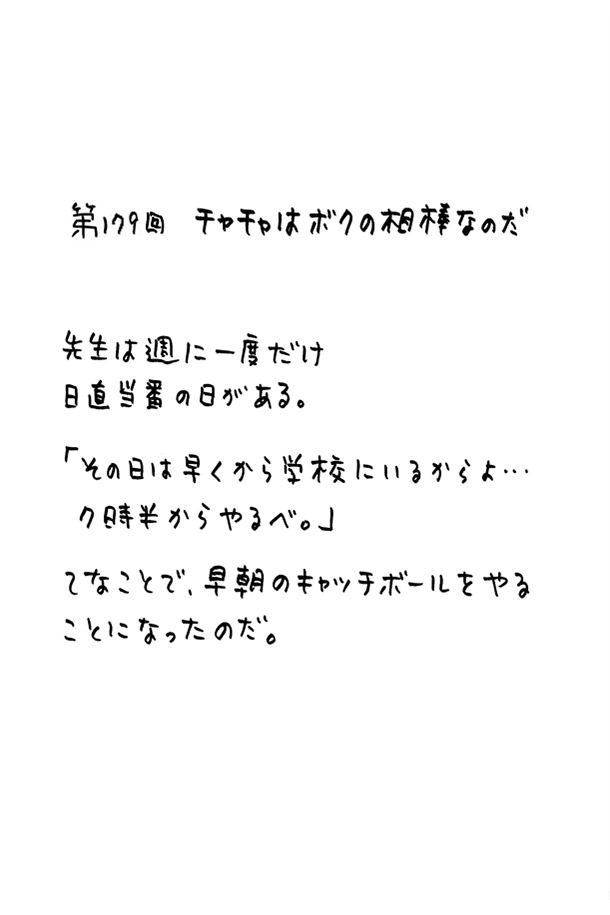 第179回 チャチャはボクの相棒なのだ
先生は週に一度だけ
日直当番の日がある。
「その日は早くから学校にいるからよ…
7時半からやるべ。」
てなことで、早朝のキャッチボールをやる
ことになったのだ。